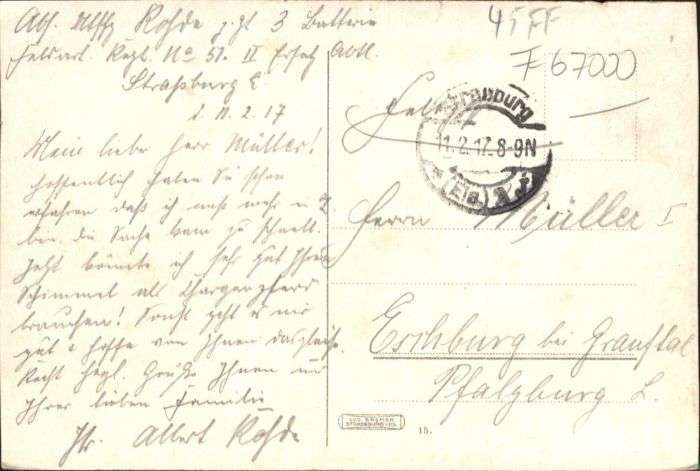 Abs. Utffz Rohde z. Zt 3 Batterie
Feldart. Regt. No 51. II Ersatz Abtl.
Straßburg E
d. 11. 2. 17
Mein lieber Herr Müller!
Hoffentlich haben Sie schon
erfahren daß ich nicht mehr in Z
bin, die Sache kam zu schnell.
Jetzt könnte ich sehr gut Ihren
Schimmel als Chargenpferd
brauchen! Sonst geht es mir
gut & hoffe von Ihnen dasgleiche.
Recht hzgl. Grüße Ihnen und
Ihrer lieben Familie
Ihr Albert Rohde
45 FF
F 67000
Strassburg
11.2.17.8-9N
(Els.)
Herrn Müller I
Eschburg bei Graufthal
Pfalzburg L.
LUC. KRÄMER
STRASSBURG-ELS.
15.